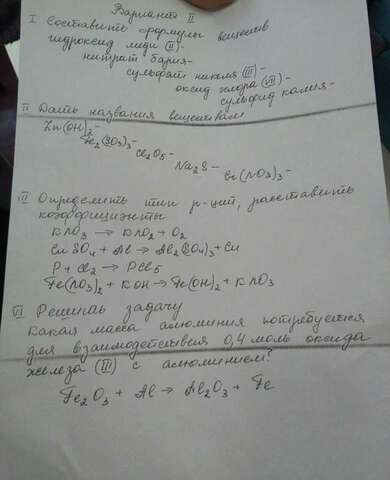 Вариант II
I Составить формулы веществ
гидроксид меди (II)-
нитрат бария-
сульфат никеля (III)-
оксид хлора (VII)-
сульфид калия-
II Дать названия веществам
Zn(OH)2-
Fe2(SO3)3-
Cl2O5-
Na2S-
Cr(NO3)3-
III Определить тип р-ций, расставить
коэффициэнты
KNO3 → KNO2 + O2
CuSO4 + Al → Al2(SO4)3 + Cu
P + Cl2 → PCl5
Fe(NO3)2 + KOH → Fe(OH)2 + KNO3
VI Решить задачу
Какая масса алюминия потребуется
для взаимодействия 0,4 моль оксида
железа (III) с алюминием?
Fe2O3 + Al → Al2O3 + Fe